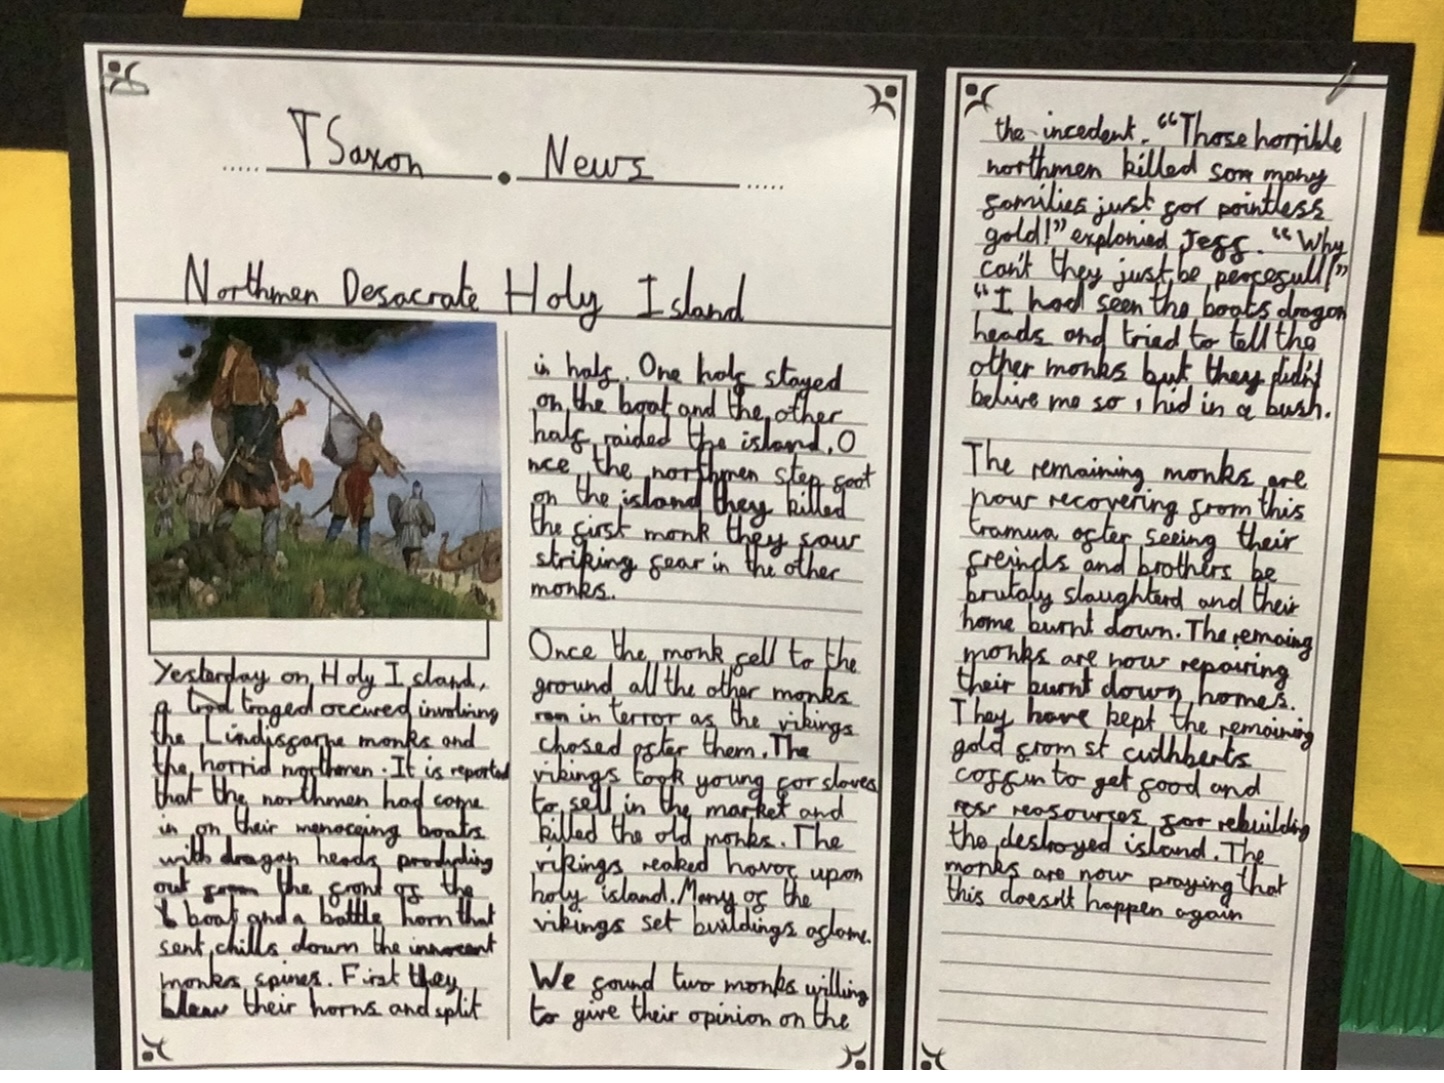 T Saxon . News
Northmen Desacrate Holy Island
Yesterday on Holy Island,
a traged occured involving
the Lindisfarne monks and
the horrid northmen. It is reported
that the northmen had come
in on their menaceing boats
with dragan heads
out from the front of the
boat and a battle horn that
sent chills down the innocent
monks spines. First they
blew their horns and split
in half. One half stayed
on the boat and the other
half raided the island. O
nce the northmen step foot
on the island they killed
the first monk they saw
striking fear in the other
monks.
Once the monk fell to the
ground all the other monks
ran in terror as the vikings
chased after them. The
vikings took young for slaves
to sell in the market and
killed the old monks. The
vikings reaked havoc upon
holy island. Many of the
vikings set buildings aflame.
We found two monks willing
to give their opinion on the
the incedent. "Those horrible
northmen killed so many
families just for pointless
gold!" explanied Jeff. "Why
can't they just be peacefull!"
"I had seen the boats dragon
heads and tried to tell the
other monks but they didn't
belive me so i hid in a bush.
The remaining monks are
now recovering from this
tramua after seeing their
freinds and brothers be
brutaly slaughterd and their
home burnt down. The remaing
monks are now repairing
their burnt down homes.
They have kept the remaining
gold from st cuthberts
coffin to get food and
reasources for rebuilding
the destroyed island. The
monks are now praying that
this doesn't happen again